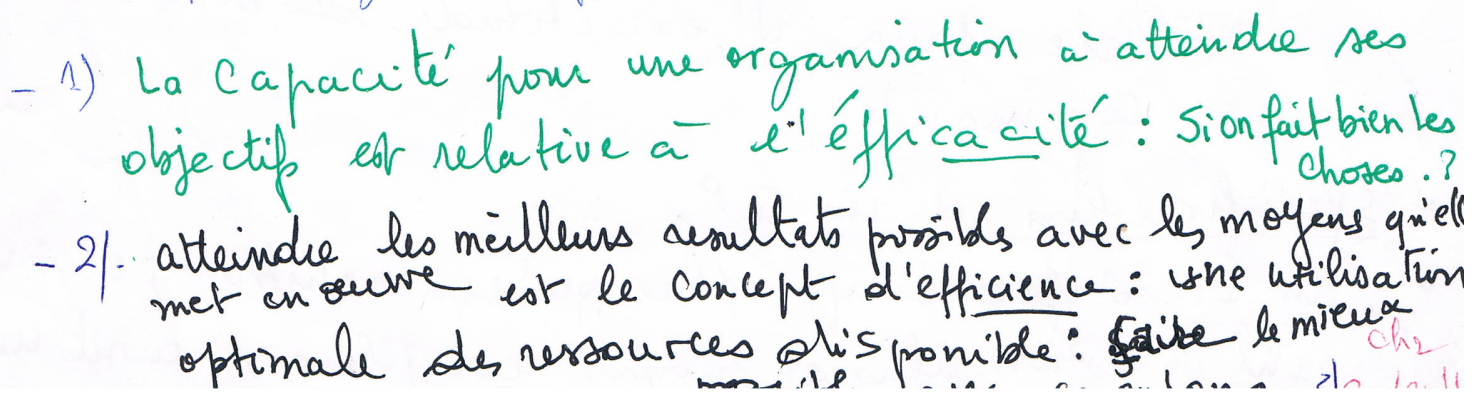 - 1) La Capacité pour une organisation à atteindre ses
objectifs est relative à l'éfficacité : Si on fait bien les
choses . ?
- 2/. atteindre les meilleurs resultats possibles avec les moyens qu'ell
met en œuvre est le concept d'efficience : une utilisation
optimale des ressources disponible : faire le mieux
ch2